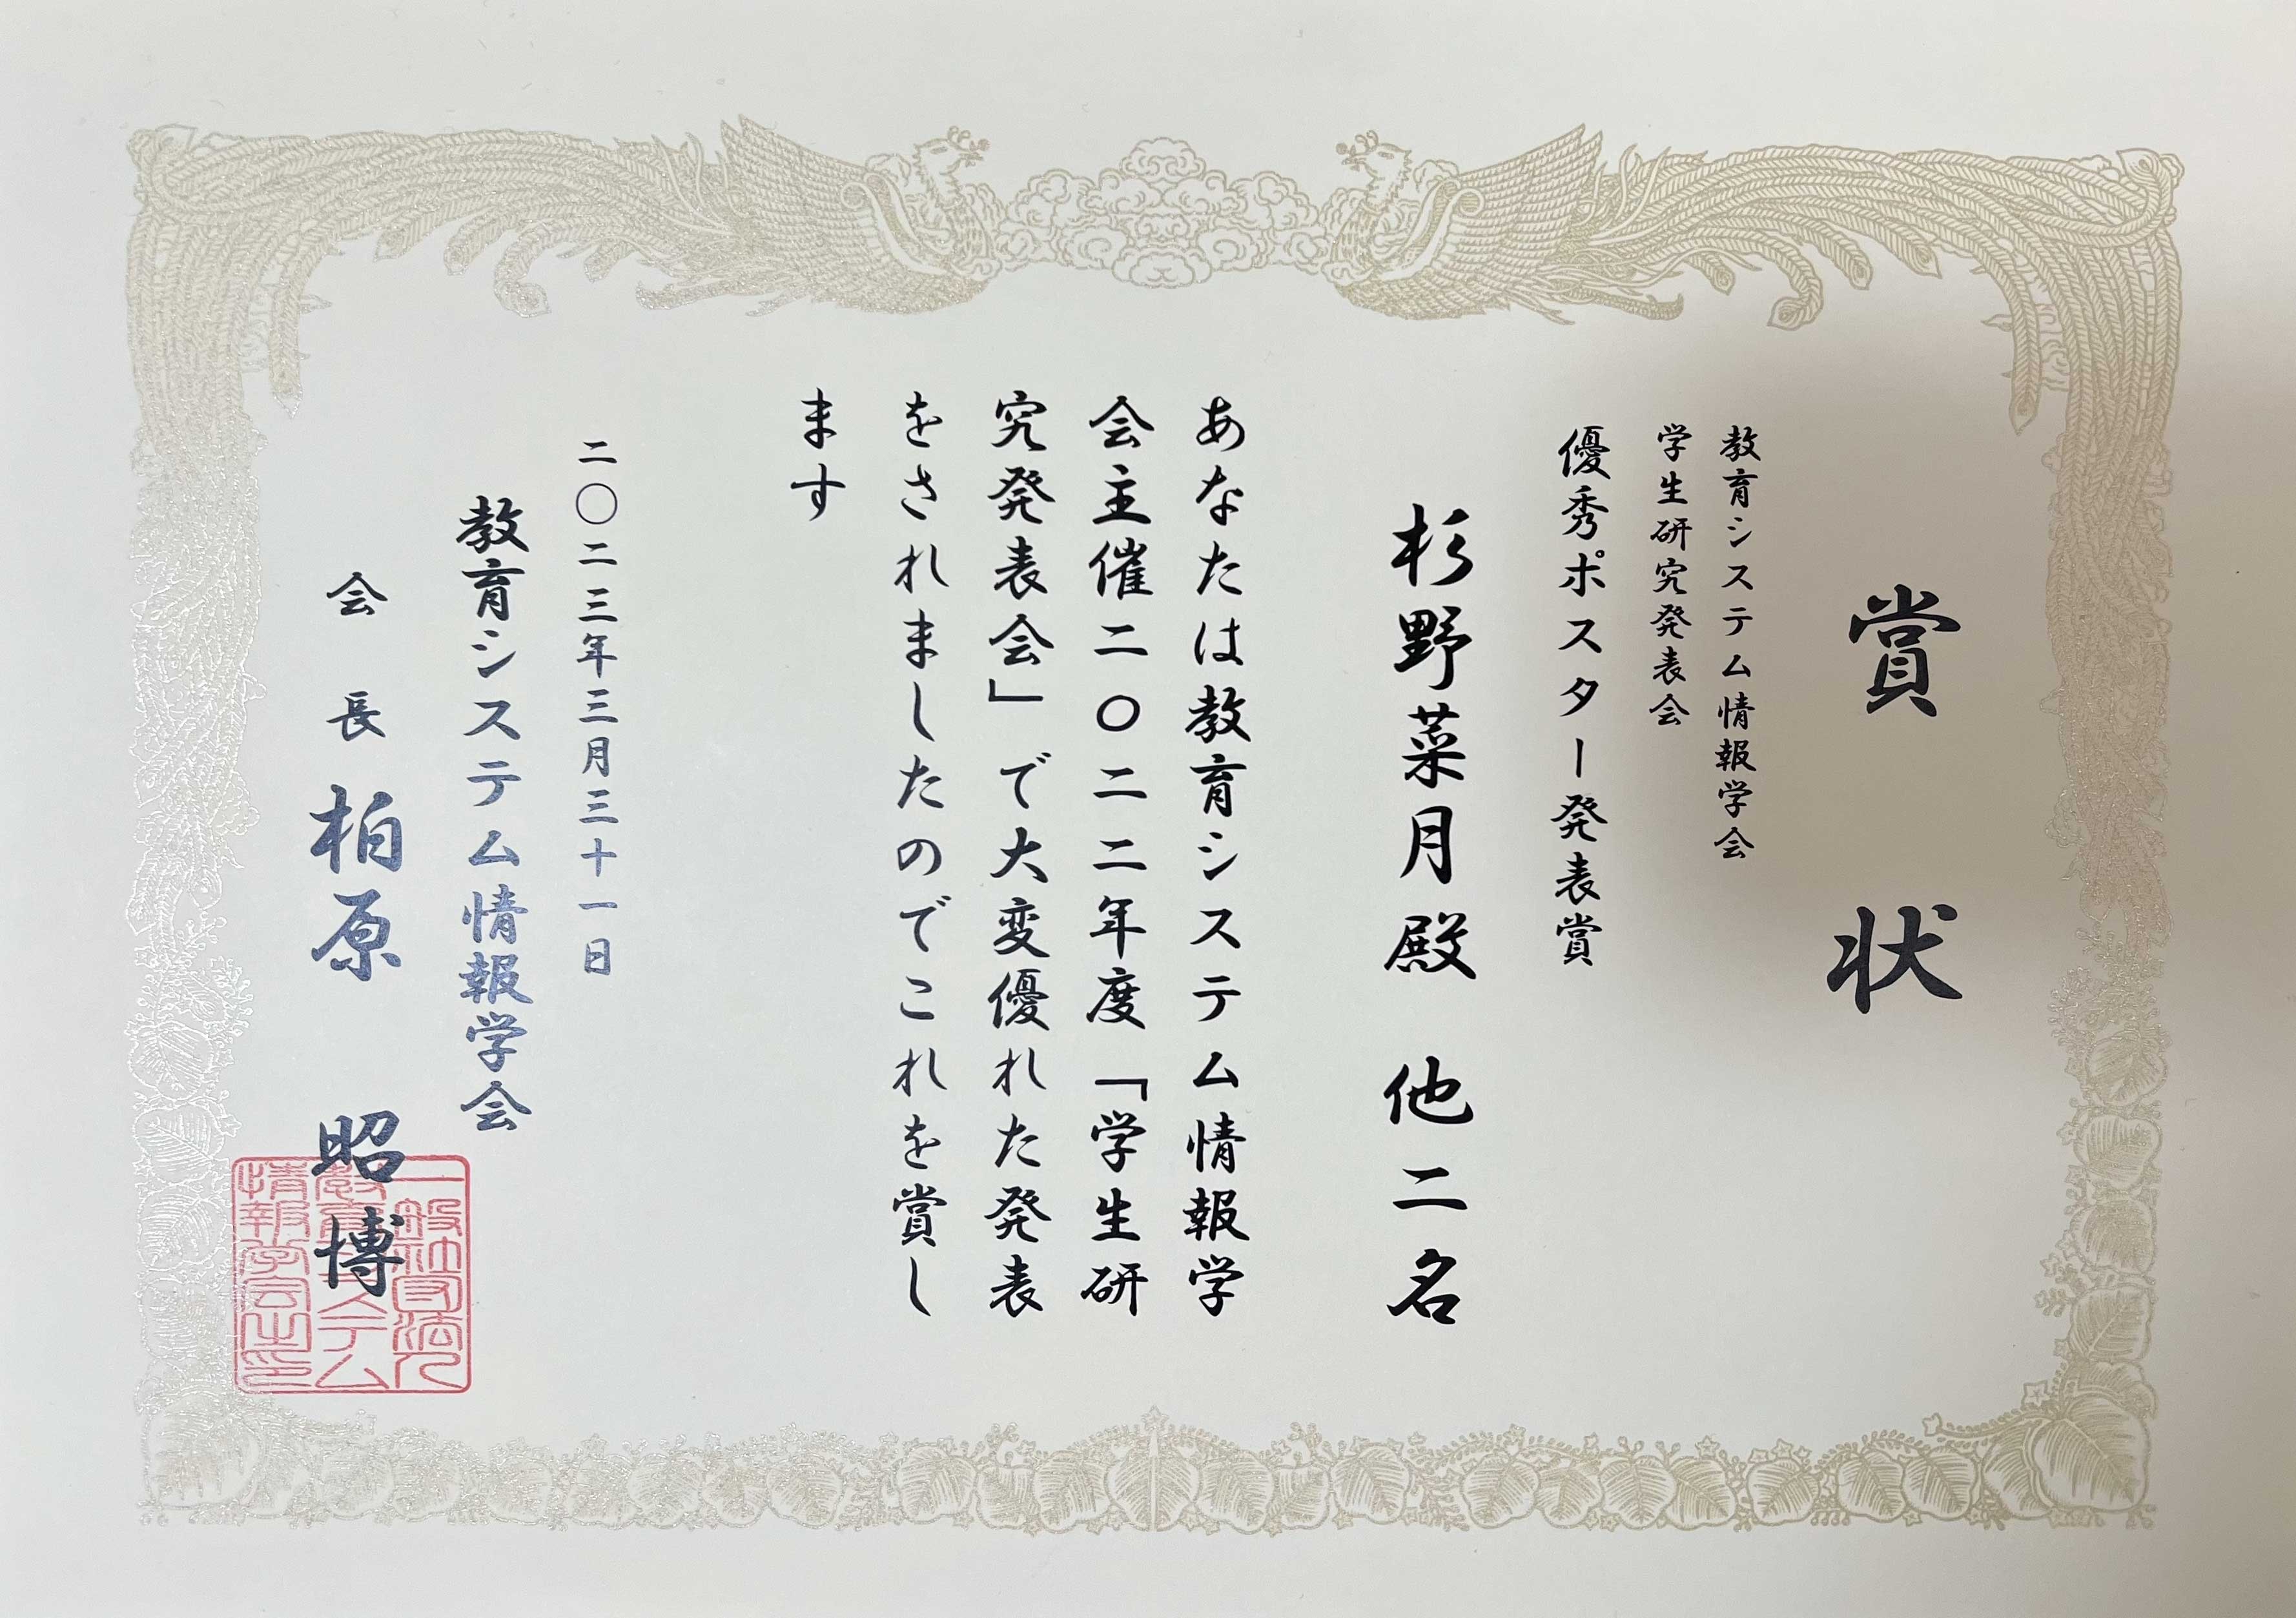 賞状
教育システム情報学会
学生研究発表会
優秀ポスター発表賞
杉野菜月殿 他二名
あなたは教育システム情報学
会主催二〇二二年度「学生研
究発表会」で大変優れた発表
をされましたのでこれを賞し
ます
二〇二三年三月三十一日
教育システム情報学会
会長 柏原 昭博
一般社団法人
教育システム
情報学会之印